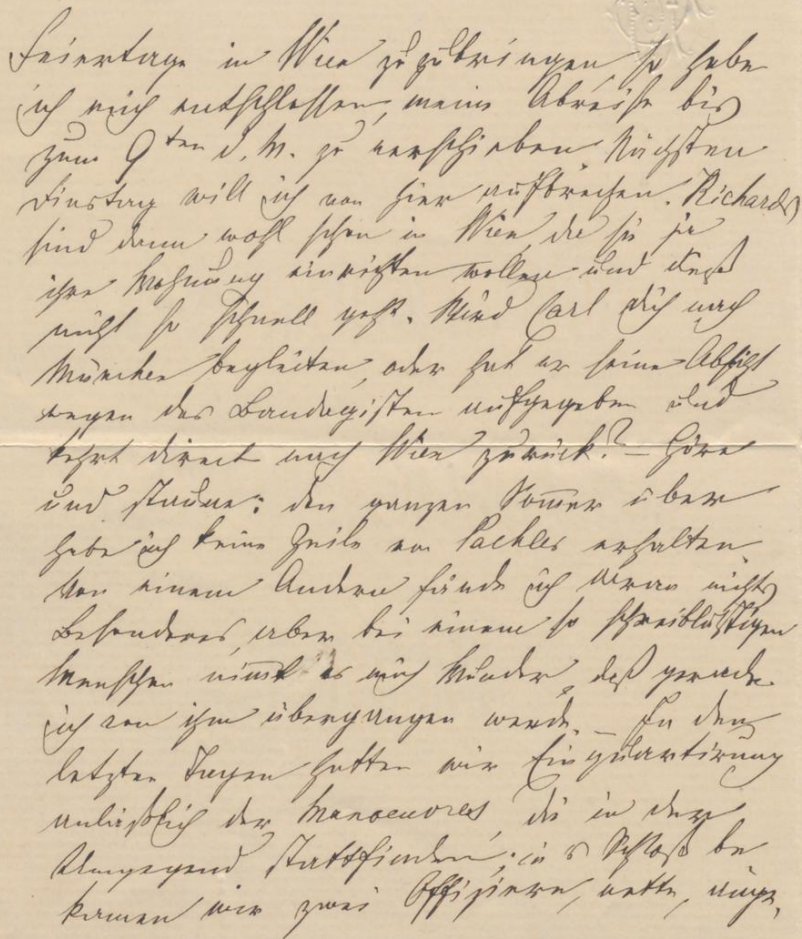 Feiertage in Wien zuzubringen, so habe
ich mich entschlossen, meine Abreise bis
zum 9ten d. M. zu verschieben. Nächsten
Dinstag will ich von hier aufbrechen. Richards
sind dann wohl schon in Wien, da sie ja
ihre Wohnung einrichten wollen und dieß
nicht so schnell geht. Wird Carl dich nach
München begleiten, oder hat er seine Absicht
wegen des Bandagisten aufgegeben und
kehrt direct nach Wien zurück? – Höre
und staune: den ganzen Sommer über
habe ich keine Zeile von Pachler erhalten.
Von einem Andern fände ich daran nichts
Besonderes, aber bei einem so schreiblustigen
Menschen nimmt es mich Wunder, daß gerade
ich von ihm übergangen werde. – In den
letzten Tagen hatten wir Einquartirung
anläßlich der Manoeuvres, die in der
Umgegend stattfinden; in's Schloß be
kamen wir zwei Offiziere, nette,